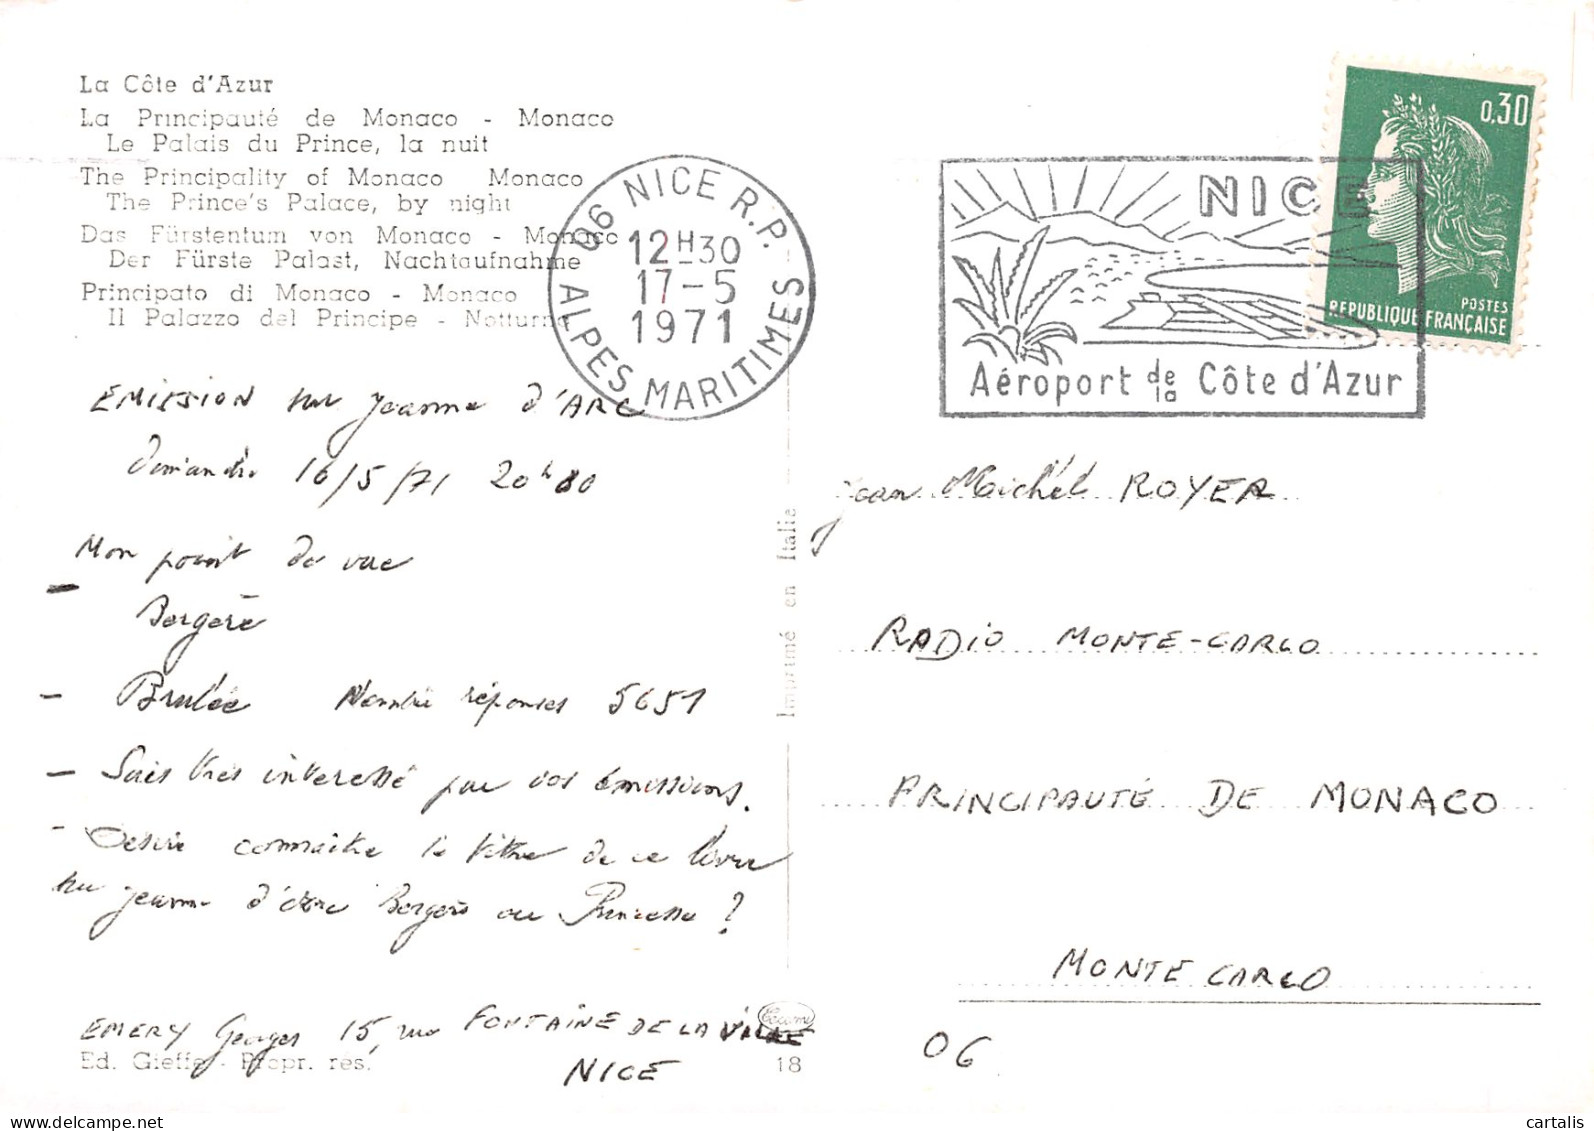 La Côte d'Azur
La Principauté de Monaco - Monaco
Le Palais du Prince, la nuit
The Principality of Monaco Monaco
The Prince's Palace, by night
Das Fürstentum von Monaco - Monaco
Der Fürste Palast, Nachtaufnahme
Principato di Monaco - Monaco
Il Palazzo del Principe - Notturno
06 NICE R.P.
12H30
17-5
1971
ALPES MARITIMES
NICE
Aéroport de la Côte d'Azur
0,30
POSTES
REPUBLIQUE FRANÇAISE
EMISSION sur Jeanne d'ARC
Dimanche 16/5/71 20h
Mon point de vue
- Bergère
- Brulée Nombre réponses 5651
- Suis très interessé par vos émissions.
- Désire connaitre le titre de ce livre
sur Jeanne d'Arc Bergère ou Princesse ?
EMERY Georges 15, rue FONTAINE DE LA VILLE
NICE
Ed. Gieffe - Propr. rés.
18
Imprimé en Italie
Jean Michel ROYER
RADIO MONTE-CARLO
PRINCIPAUTÉ DE MONACO
MONTE CARLO
06
cartalis